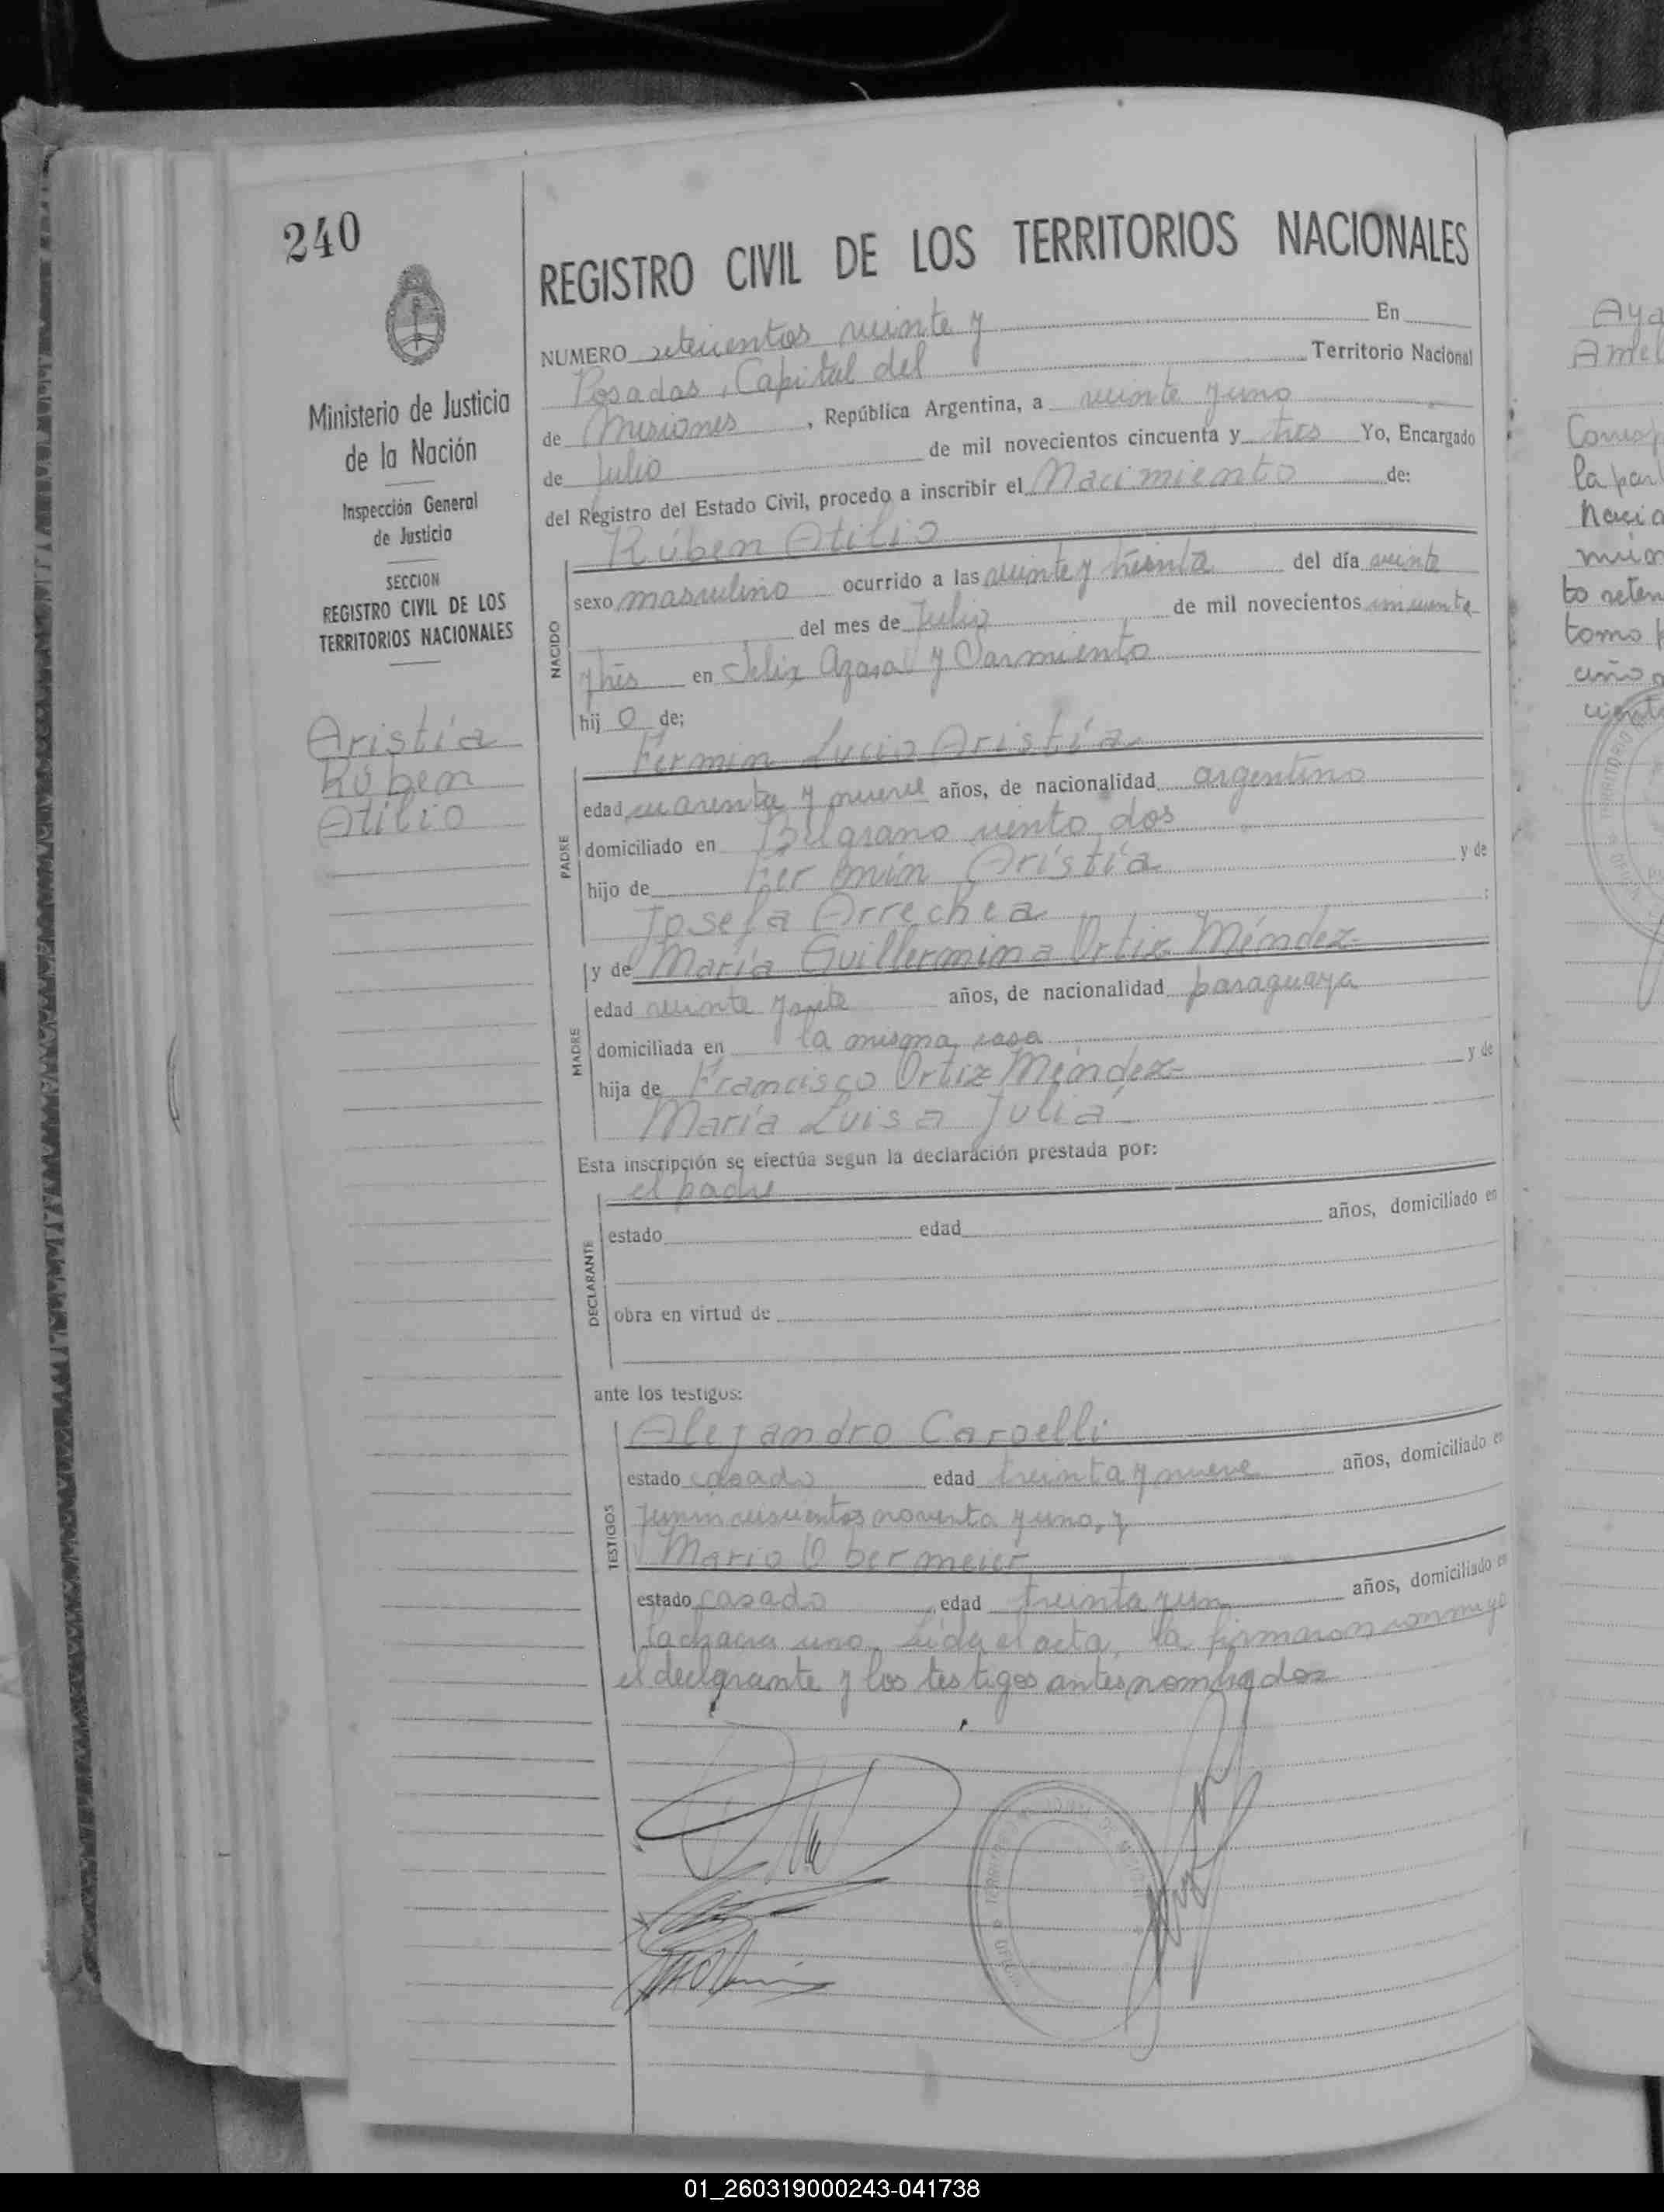 240
Ministerio de Justicia
de la Nación
Inspección General
de Justicia
SECCION
REGISTRO CIVIL DE LOS
TERRITORIOS NACIONALES
Aristía
Rúben
Atilio
REGISTRO CIVIL DE LOS TERRITORIOS NACIONALES
NUMERO setecientos veinte y En
Posadas, Capital del Territorio Nacional
de Misiones, República Argentina, a veinte y uno
de Julio de mil novecientos cincuenta y tres Yo, Encargado
del Registro del Estado Civil, procedo a inscribir el Nacimiento de:
Rúben Atilio
NACIDO
sexo masculino ocurrido a las veinte y treinta del día veinte
del mes de Julio de mil novecientos cincuenta
y tres en Felix Azara y Sarmiento
hij o de;
Fermin Lucio Aristía
PADRE
edad cuarenta y nueve años, de nacionalidad argentino
domiciliado en Belgrano ciento dos
hijo de Fermín Arístía y de
Josefa Arrechea ;
y de María Guillermina Ortiz Méndez
MADRE
edad veinte y siete años, de nacionalidad paraguaya
domiciliada en la misma casa
hija de Francisco Ortiz Méndez y de
María Luisa Julia
Esta inscripción se efectúa segun la declaración prestada por:
el padre
DECLARANTE
estado edad años, domiciliado en
obra en virtud de
ante los testigos:
Alejandro
TESTIGOS
estado casado edad treinta y nueve años, domiciliado en
Junin noventa y uno, y
Mario Obermeier
estado casado edad treinta y un años, domiciliado en
la chacra uno. Leida el acta, la firmaron conmigo
el declarante y los testigos antes nombrados
Aya
Amel
Corresp
la par
Nacio
mien
to seten
tomo p
año
01_260319000243-041738